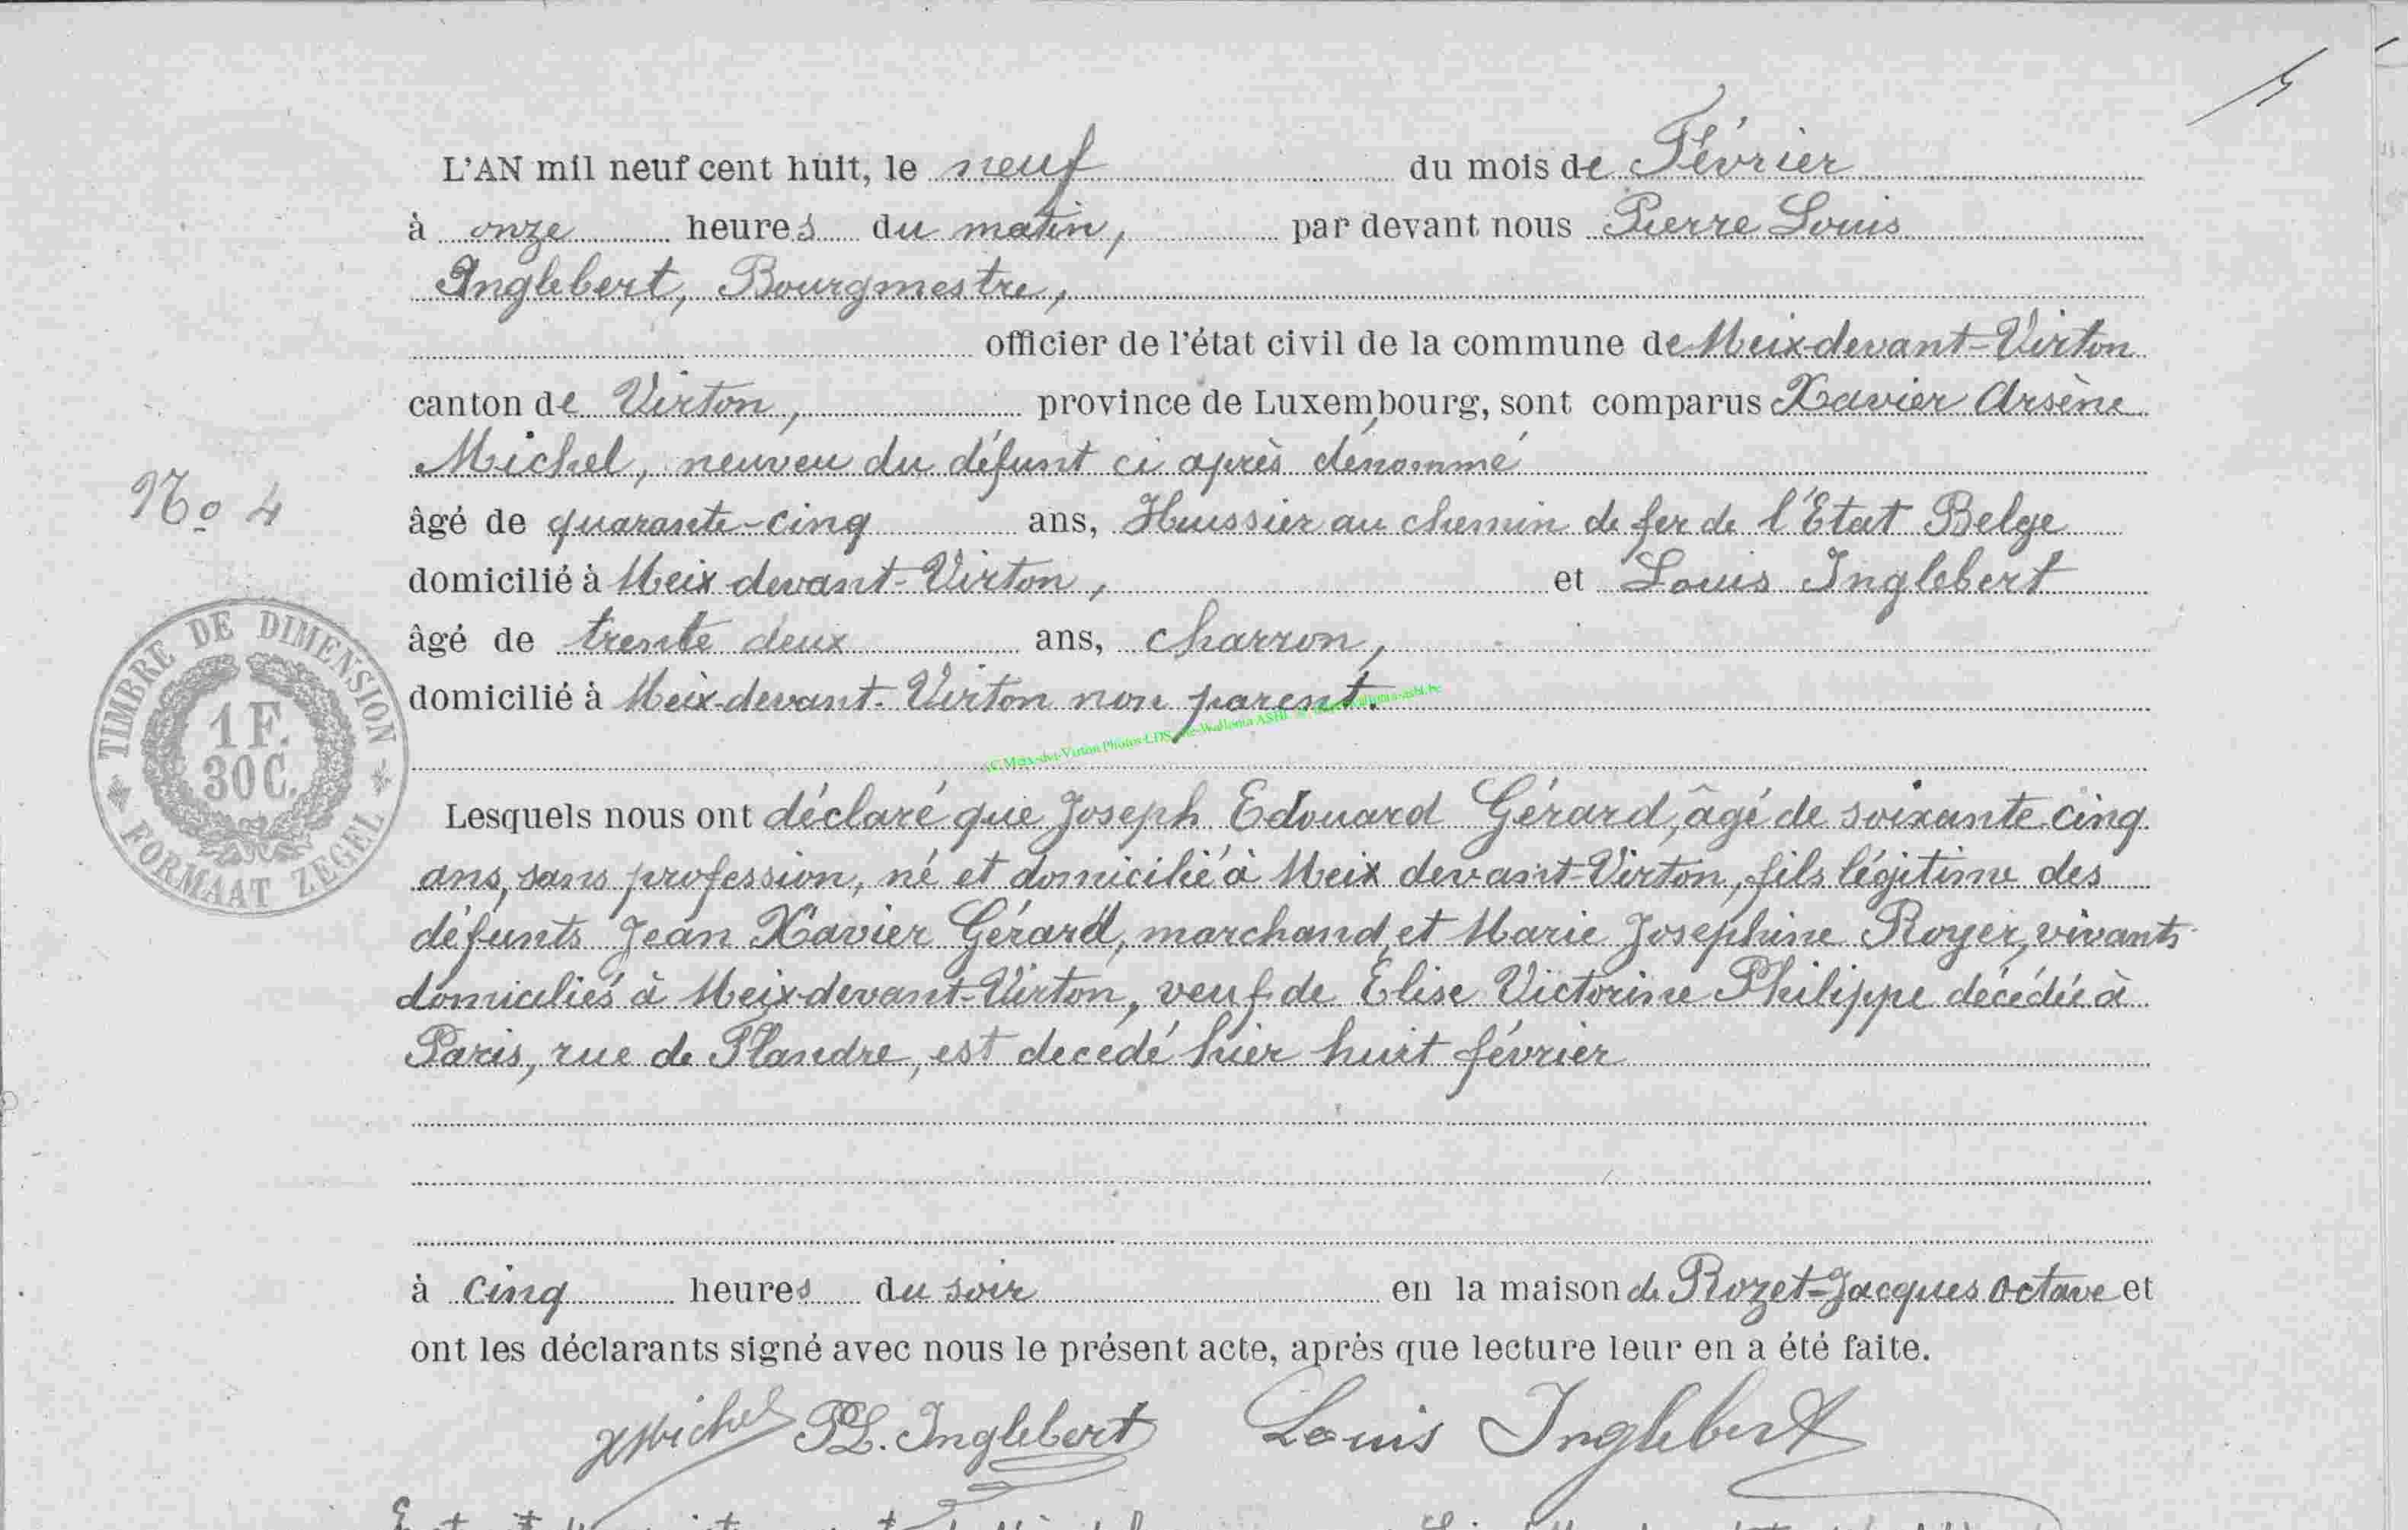 L'AN mil neuf cent huit, le neuf du mois de Février
à onze heures du matin, par devant nous Pierre Louis
Inglebert, Bourgmestre,
officier de l'état civil de la commune de Meix-devant-Virton
canton de Virton, province de Luxembourg, sont comparus Xavier Arsène
Michel, neuveu du défunt ci après dénommé
No 4
âgé de quarante-cinq ans, Huissier au chemin de fer de l'Etat Belge
domicilié à Meix devant-Virton, et Louis Inglebert
âgé de trente deux ans, charron,
domicilié à Meix-devant-Virton non parent.
TIMBRE DE DIMENSION
1 F.
30 C.
FORMAAT ZEGEL
Lesquels nous ont déclaré que Joseph Edouard Gérard, âgé de soixante cinq
ans, sans profession, né et domicilié à Meix devant-Virton, fils légitime des
défunts Jean Xavier Gérard, marchand, et Marie Joséphine Royer, vivants
domiciliés à Meix-devant-Virton, veuf de Elise Victorine Philippe décédée à
Paris, rue de Flandre, est decedé hier huit février
à cinq heures du soir en la maison de Rozet-Jacques Octave et
ont les déclarants signé avec nous le présent acte, après que lecture leur en a été faite.
XMichel PL. Inglebert Louis Inglebert